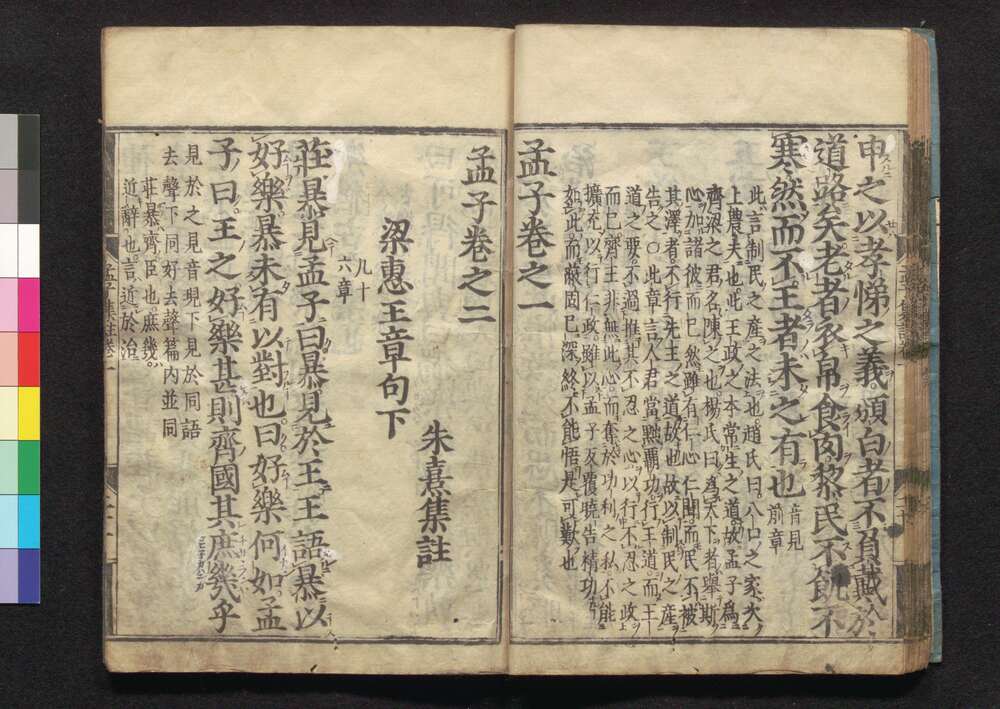 申之以孝悌之義頒白者不負戴於
道路矣老者衣帛食肉黎民不飢不
寒然而不王者未之有也
音見
前章
此言制民之産之法也趙氏曰八口之家次
上農夫也此王政之本常生之道故孟子為
齊梁之君各陳之也楊氏曰為天下者舉斯
心加諸彼而已然雖有仁心仁聞而民不被
其澤者不行先王之道故也故以制民之産
告之○此章言人君當黜霸功行王道而王
道之要不過推其不忍之心以行不忍之政
而已齊王非無此心而奪於功利之私不能
擴充以行仁政雖以孟子反覆曉告精功
如此而蔽固已深終不能悟是可歎也
孟子卷之一
孟子卷之二
朱熹集註
梁惠王章句下
凡十
六章
莊暴見孟子曰暴見於王王語暴以
好樂暴未有以對也曰好樂何如孟
子曰王之好樂甚則齊國其庶幾乎
見於之見音現下見於同語
去聲下同好去聲篇内並同
莊暴齊臣也庶幾
近辭也言近於治